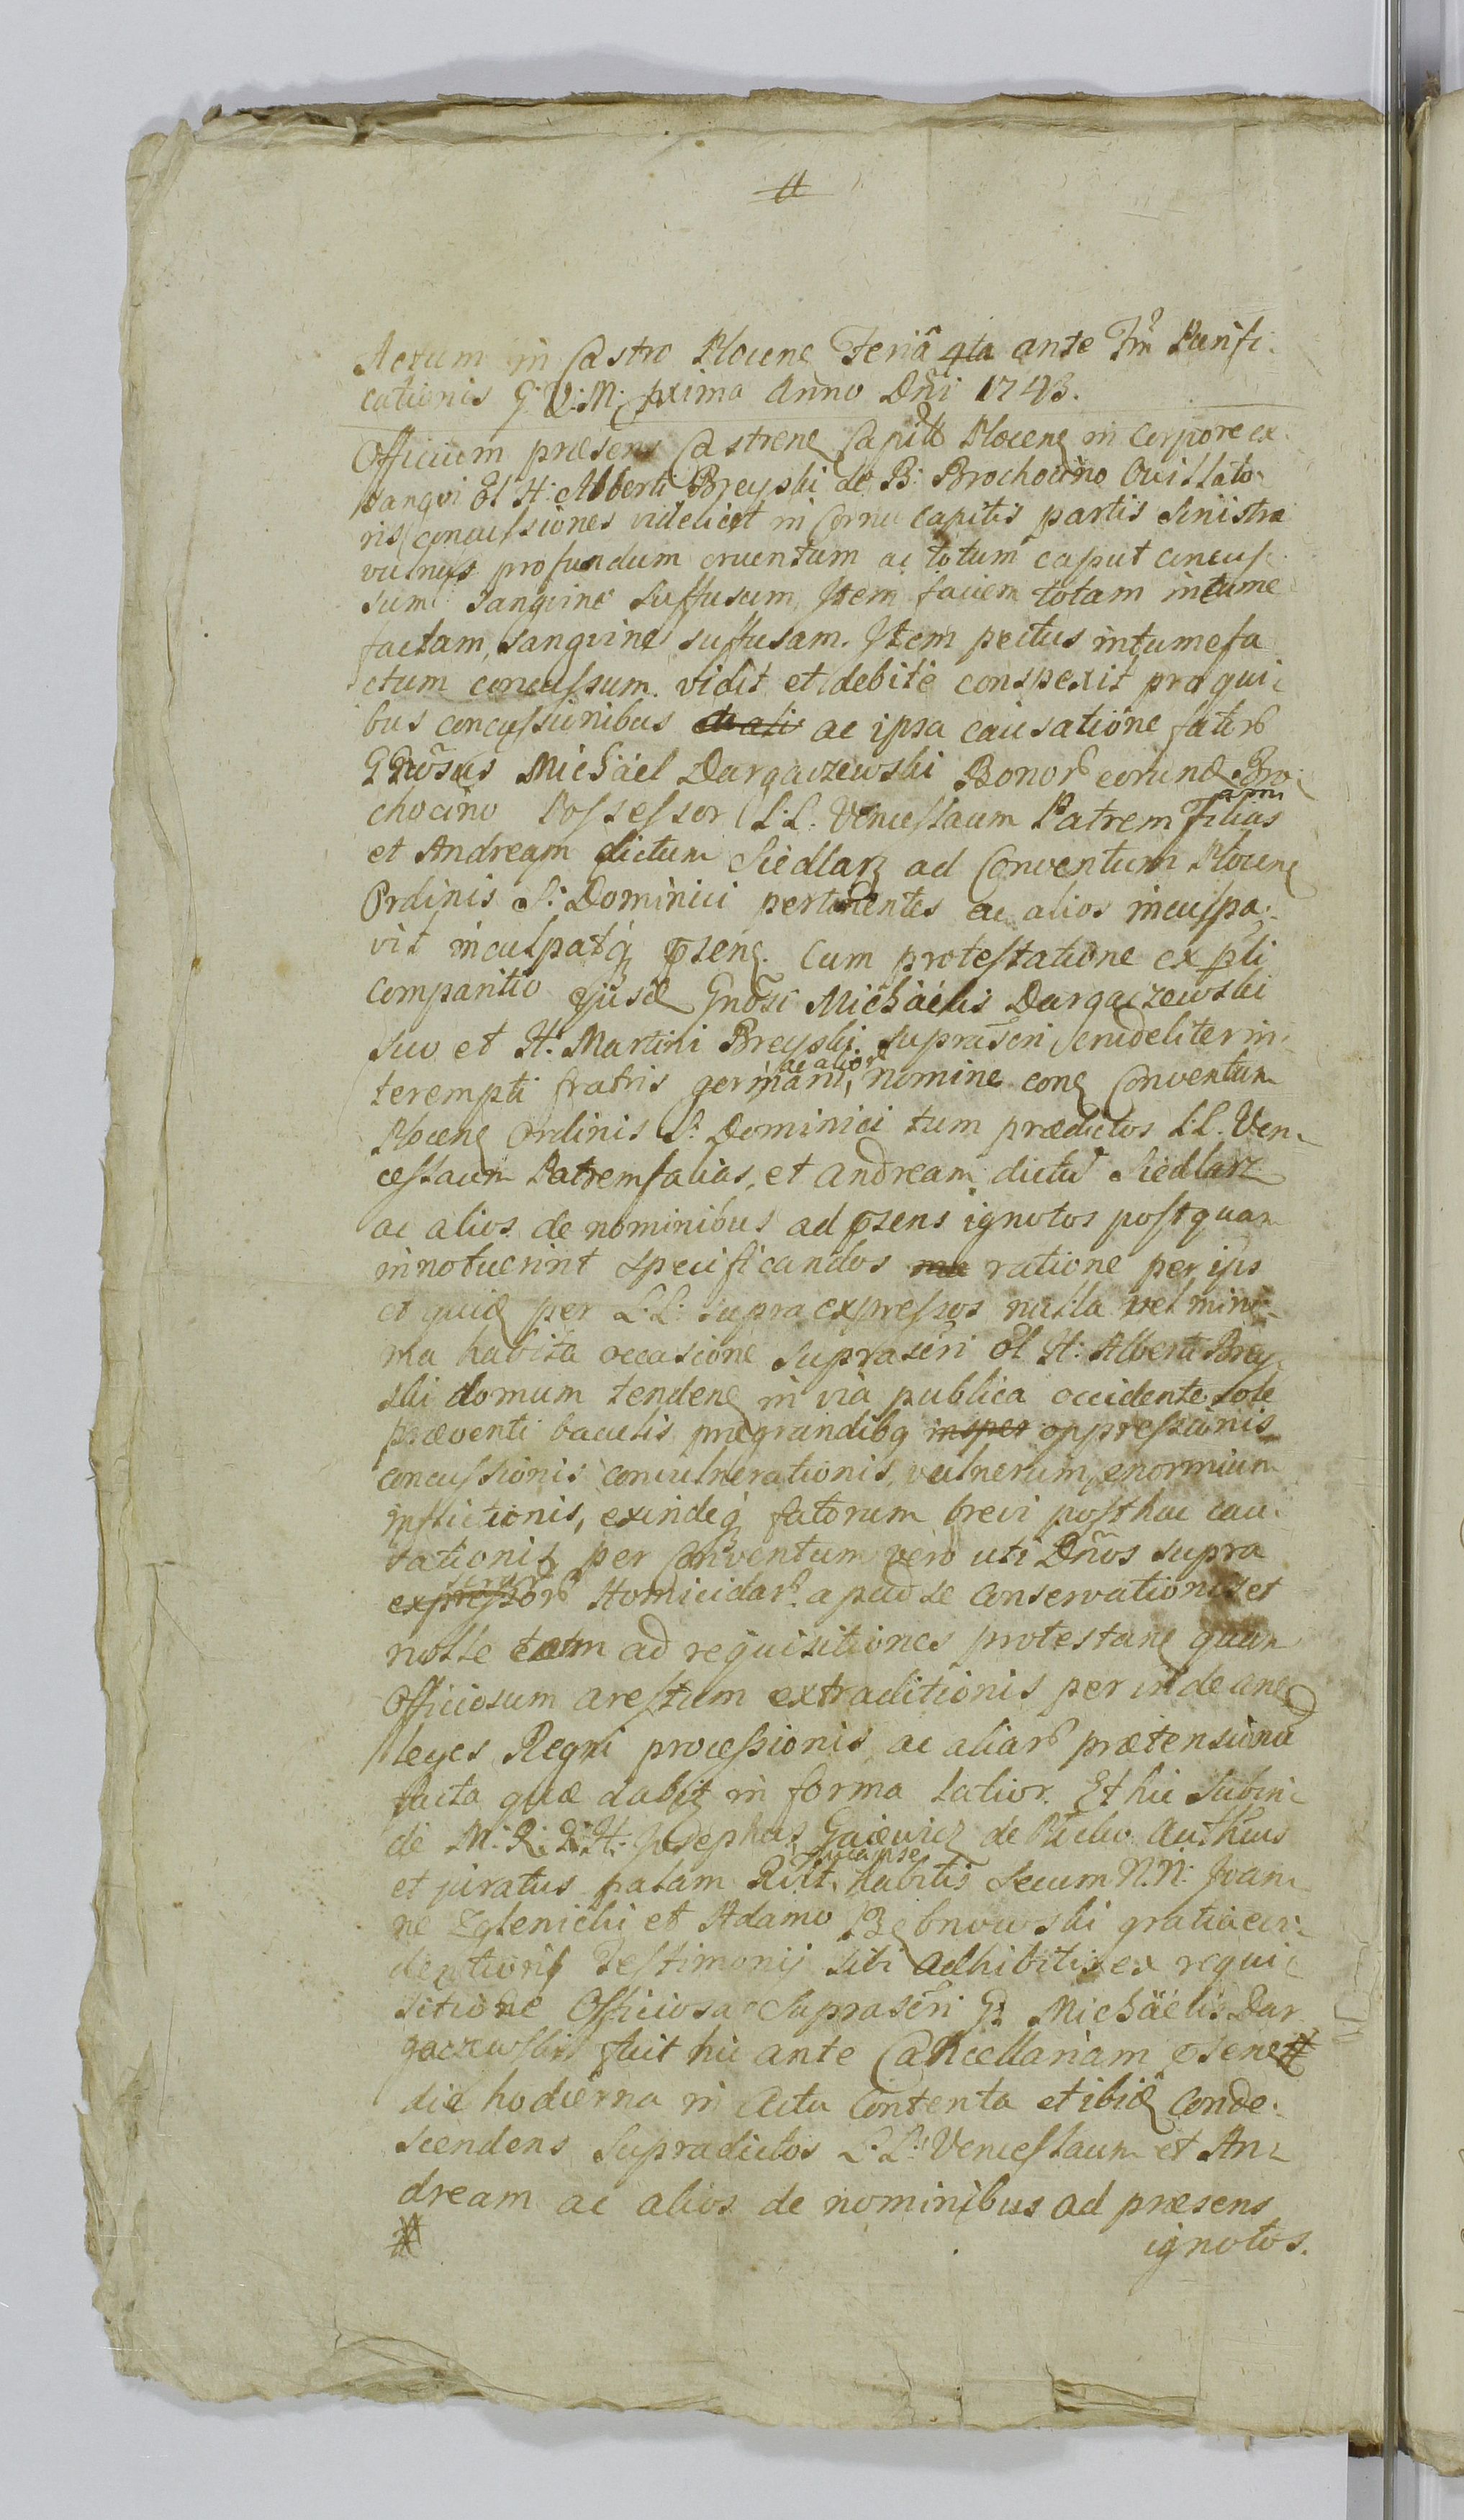 #
Actum in Castro Plocens Feriâ 4ta ante Fm Purifi
cationis G: V: M: pxima Anno Dni 1743.
Officium præsens Castrens Capitle Plocens in corpore ex
sangvi Ol H: Alberti Breyski de B: Brochocino Ovillato
ris concussiones videlicet in Cornu capitis partis Sinistræ
vulnus profundum cruentum ac totum caput concus
sum sangvine suffusum, Item faciem totam intume
factam, sangvine suffusam. Item pectus intumefa
ctum concussum. vidit et debite conspexit pro qui
bus concussionibus ac ipsa causatione fatirb
Gnosus Michäel Dargaczewski Bonorb eorund Bro
chocino Possessor L:L: Venceslaum Patrem filias
et Andream dictum Siedlarz ad Conventum Plocens
Ordinis S: Dominici pertinentes ac alios inculpa
vit inculpatq psens. Cum protestatione ex pti
comparitio ejusd Gnosi Michäelis Dargaczewski
Suo et H: Martini Breyski supraseri crudeliter in
terempti fratris germani, ac alior nomine cons Conventum
Plocens Ordinis S: Dominici tum prædictos L:L. Ven
ceslaum Patremfalias, et andream dictu Siedlarz
ac alios de nominibus ad psens ignotos postquam
innotuerint specificandos ratione per ips
et quid per L:L: supraexpressos nulla vel mini
ma habita occasione supraseri Ol H: Alberti Brey
ski domum tendens in via publica occidente sole
præventi baculis prægrandibq insper oppressionis
concussionis convulnerationis, vulnerum enormium
inflictionis, exindeq fatorum brevi posthac cau
sationis, per Conventum vero uti Dnos supra
expressorb Homicidarb apud se conservationis et
nolle eosm ad requisitiones protestans quam
Officiosum arestum extraditionis perinde ane
leges Regni processionis ac aliarb prætensionu
facta quæ dabit in forma latior. Et hic subin
de M: R: R: H: Josephus Gaiewicz de Placbo Authcus
et juratus palam Rlit, quia ipse habitis secum N.N. Joan
ne Zglenicki et Adamo Bębnowski gratia evi
dentioris Testimonij sibi adhibitis ex requi
sitione Officiosa Supraseri G: Michäelis Dar
gaczewski fuit hic ante Cancellariam psens #
die hodierna in Actu Contenta et ibid Conde
scendens supradictos L:L: Venceslaum et An
dream ac alios de nominibus ad præsens
#
ignotos.